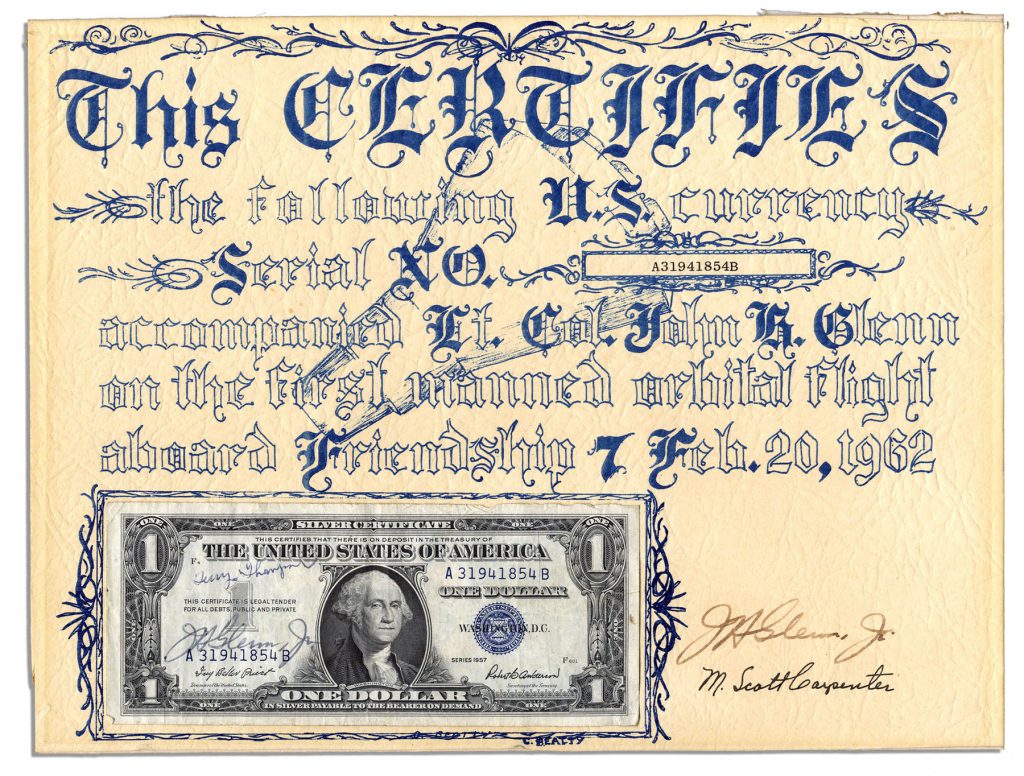 This CERTIFIES
the following U.S. currency
Serial NO. A31941854B
accompanied Lt. Col. John H. Glenn
on the first manned orbital flight
aboard Friendship 7 Feb. 20, 1962
ONE ONE SILVER CERTIFICATE ONE ONE
1 1
THIS CERTIFIES THAT THERE IS ON DEPOSIT IN THE TREASURY OF
THE UNITED STATES OF AMERICA
A 31941854 B
ONE DOLLAR
THIS CERTIFICATE IS LEGAL TENDER
FOR ALL DEBTS, PUBLIC AND PRIVATE
WASHINGTON, D.C.
JH Glenn, Jr.
A 31941854 B
SERIES 1957
Ivy Baker Priest
Robert B. Anderson
Treasurer of the United States
Secretary of the Treasury
1 1
ONE DOLLAR
IN SILVER PAYABLE TO THE BEARER ON DEMAND
JH Glenn, Jr.
M. Scott Carpenter
C. BEATTY